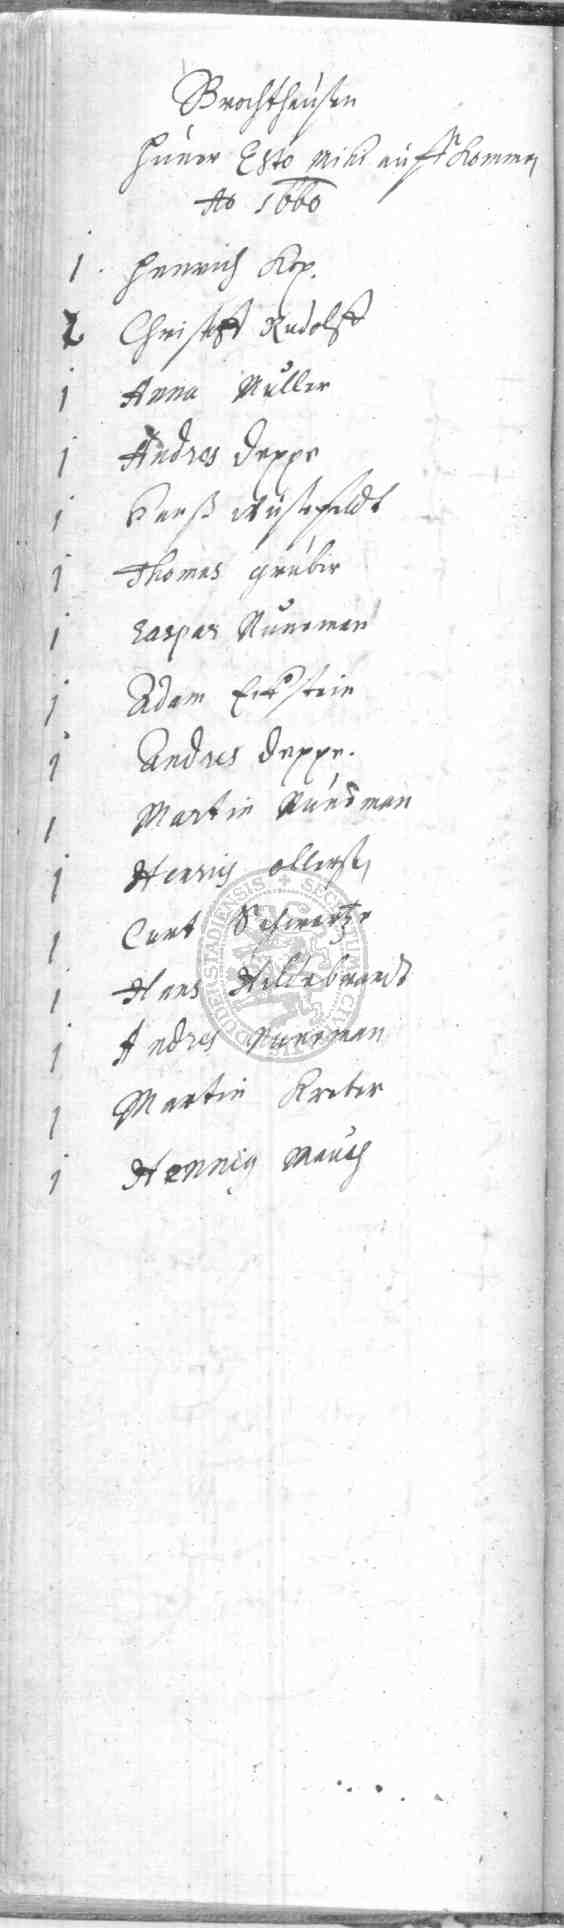 Brochthausen
Hüner Esto Mihi auffkommen
Ao 1660
1 Henrich Kop.
2 Christoff Rudolff
1 Anna Müller
1 Andres Deppe
1 Hanß Wüstefeldt
1 Thomas gruber
1 Caspar Nuneman
1 Adam Eckstein
1 Andres Deppe.
1 Martin Nuneman
1 Henrich ollersh
1 Curt Schwartze
1 Hans Hildebrandt
1 Andres Nuneman
1 Martin Kreter
1 Hennig Mauch
SECRETUM CIVITATIS DUDERSTADIENSIS